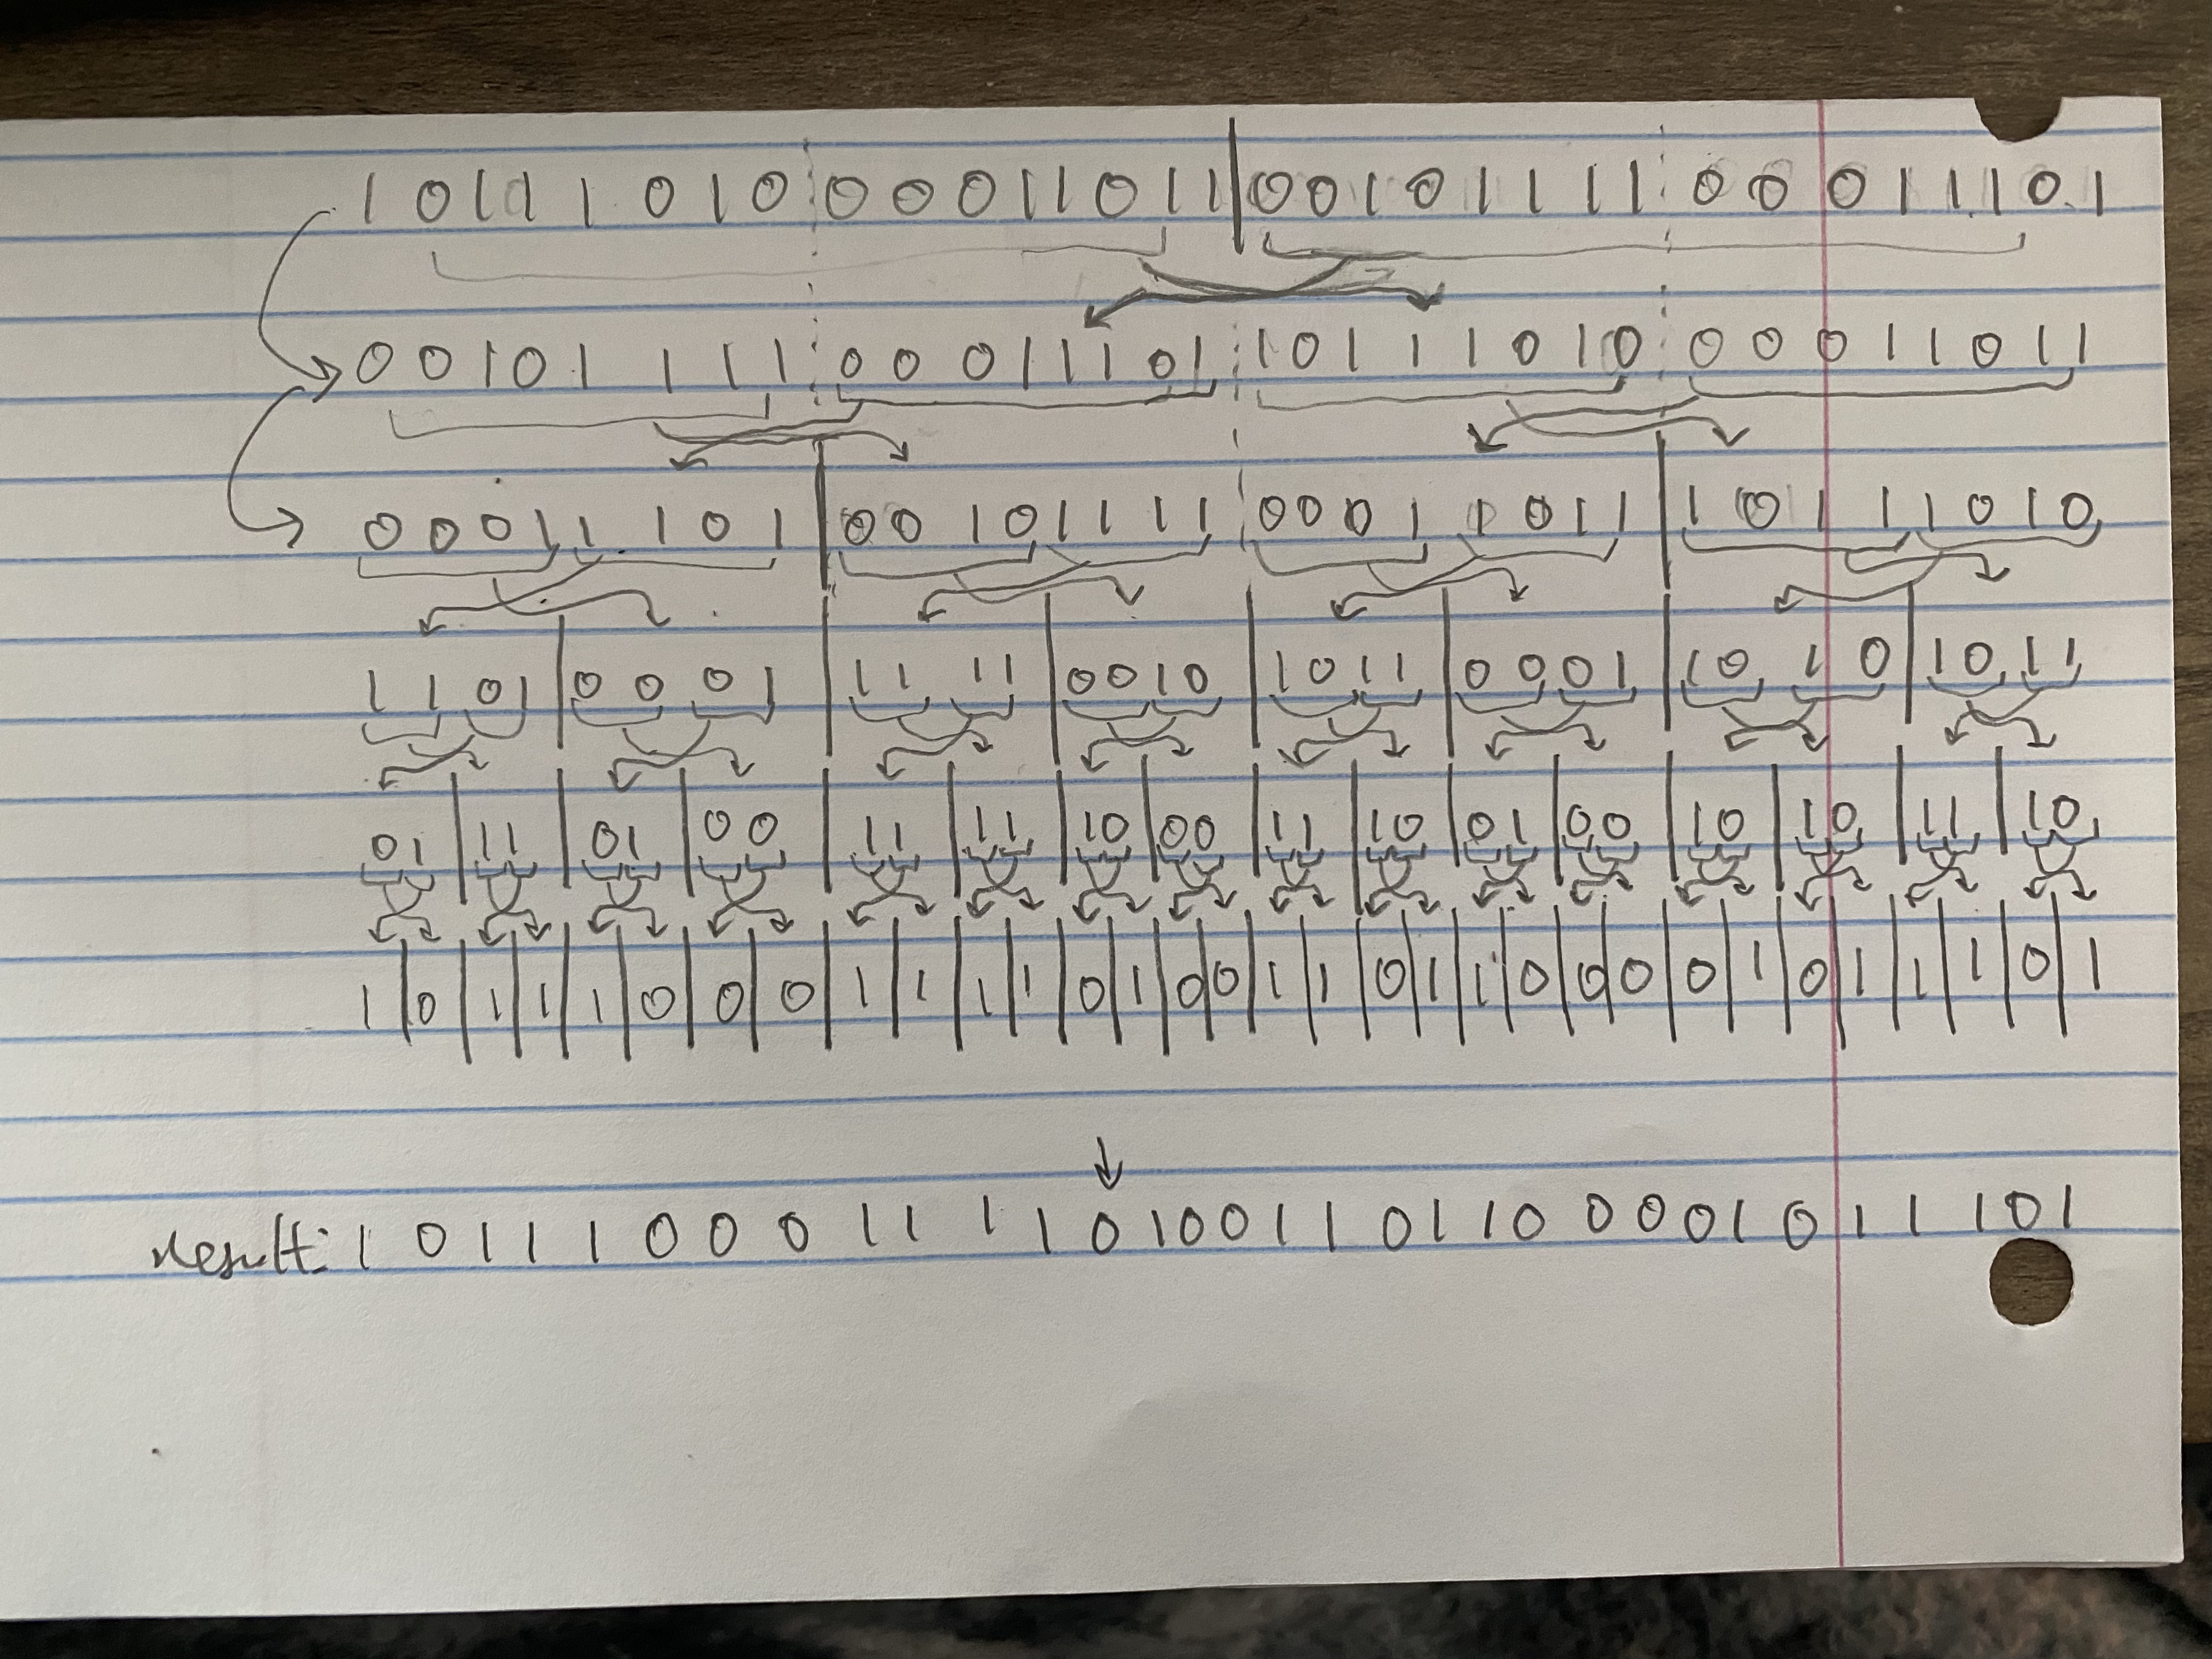 1 0 1 1 1 0 1 0 0 0 0 1 1 0 1 1 | 0 0 1 0 1 1 1 1 0 0 0 1 1 1 0 1
0 0 1 0 1 1 1 1 0 0 0 1 1 1 0 1 1 0 1 1 1 0 1 0 0 0 0 1 1 0 1 1
0 0 0 1 1 1 0 1 | 0 0 1 0 1 1 1 1 0 0 0 1 1 0 1 1 | 1 0 1 1 1 0 1 0
1 1 0 1 | 0 0 0 1 | 1 1 1 1 | 0 0 1 0 | 1 0 1 1 | 0 0 0 1 | 1 0 1 0 | 1 0 1 1
01 | 11 | 01 | 00 | 11 | 11 | 10 | 00 | 11 | 10 | 01 | 00 | 10 | 10 | 11 | 10
1 | 0 | 1 | 1 | 1 | 0 | 0 | 0 | 1 | 1 | 1 | 1 | 0 | 1 | 0 | 0 | 1 | 1 | 0 | 1 | 1 | 0 | 0 | 0 | 0 | 1 | 0 | 1 | 1 | 1 | 0 | 1
result: 1 0 1 1 1 0 0 0 1 1 1 1 0 1 0 0 1 1 0 1 1 0 0 0 0 1 0 1 1 1 0 1